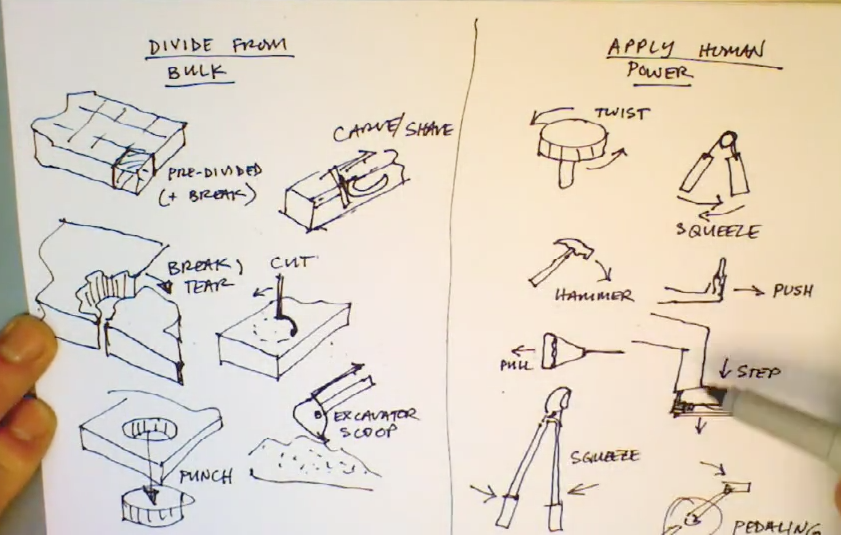 DIVIDE FROM
BULK
PRE-DIVIDED
(+ BREAK)
CARVE/SHAVE
BREAK,
TEAR
CUT
EXCAVATOR
SCOOP
PUNCH
APPLY HUMAN
POWER
TWIST
SQUEEZE
HAMMER
PUSH
PULL
STEP
SQUEEZE
PEDALING